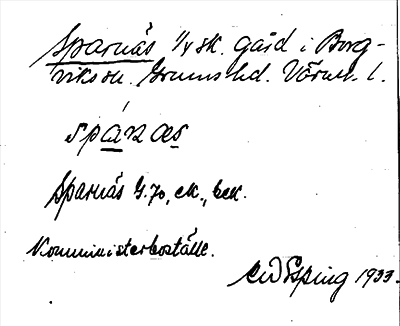 Sparnäs 1/4 sk. gård i Borg-
viks sn. Grums hd. Värml. l.
spánas
Sparnäs G. Jo, ek., bek.
Komm­inisterboställe.
1933.